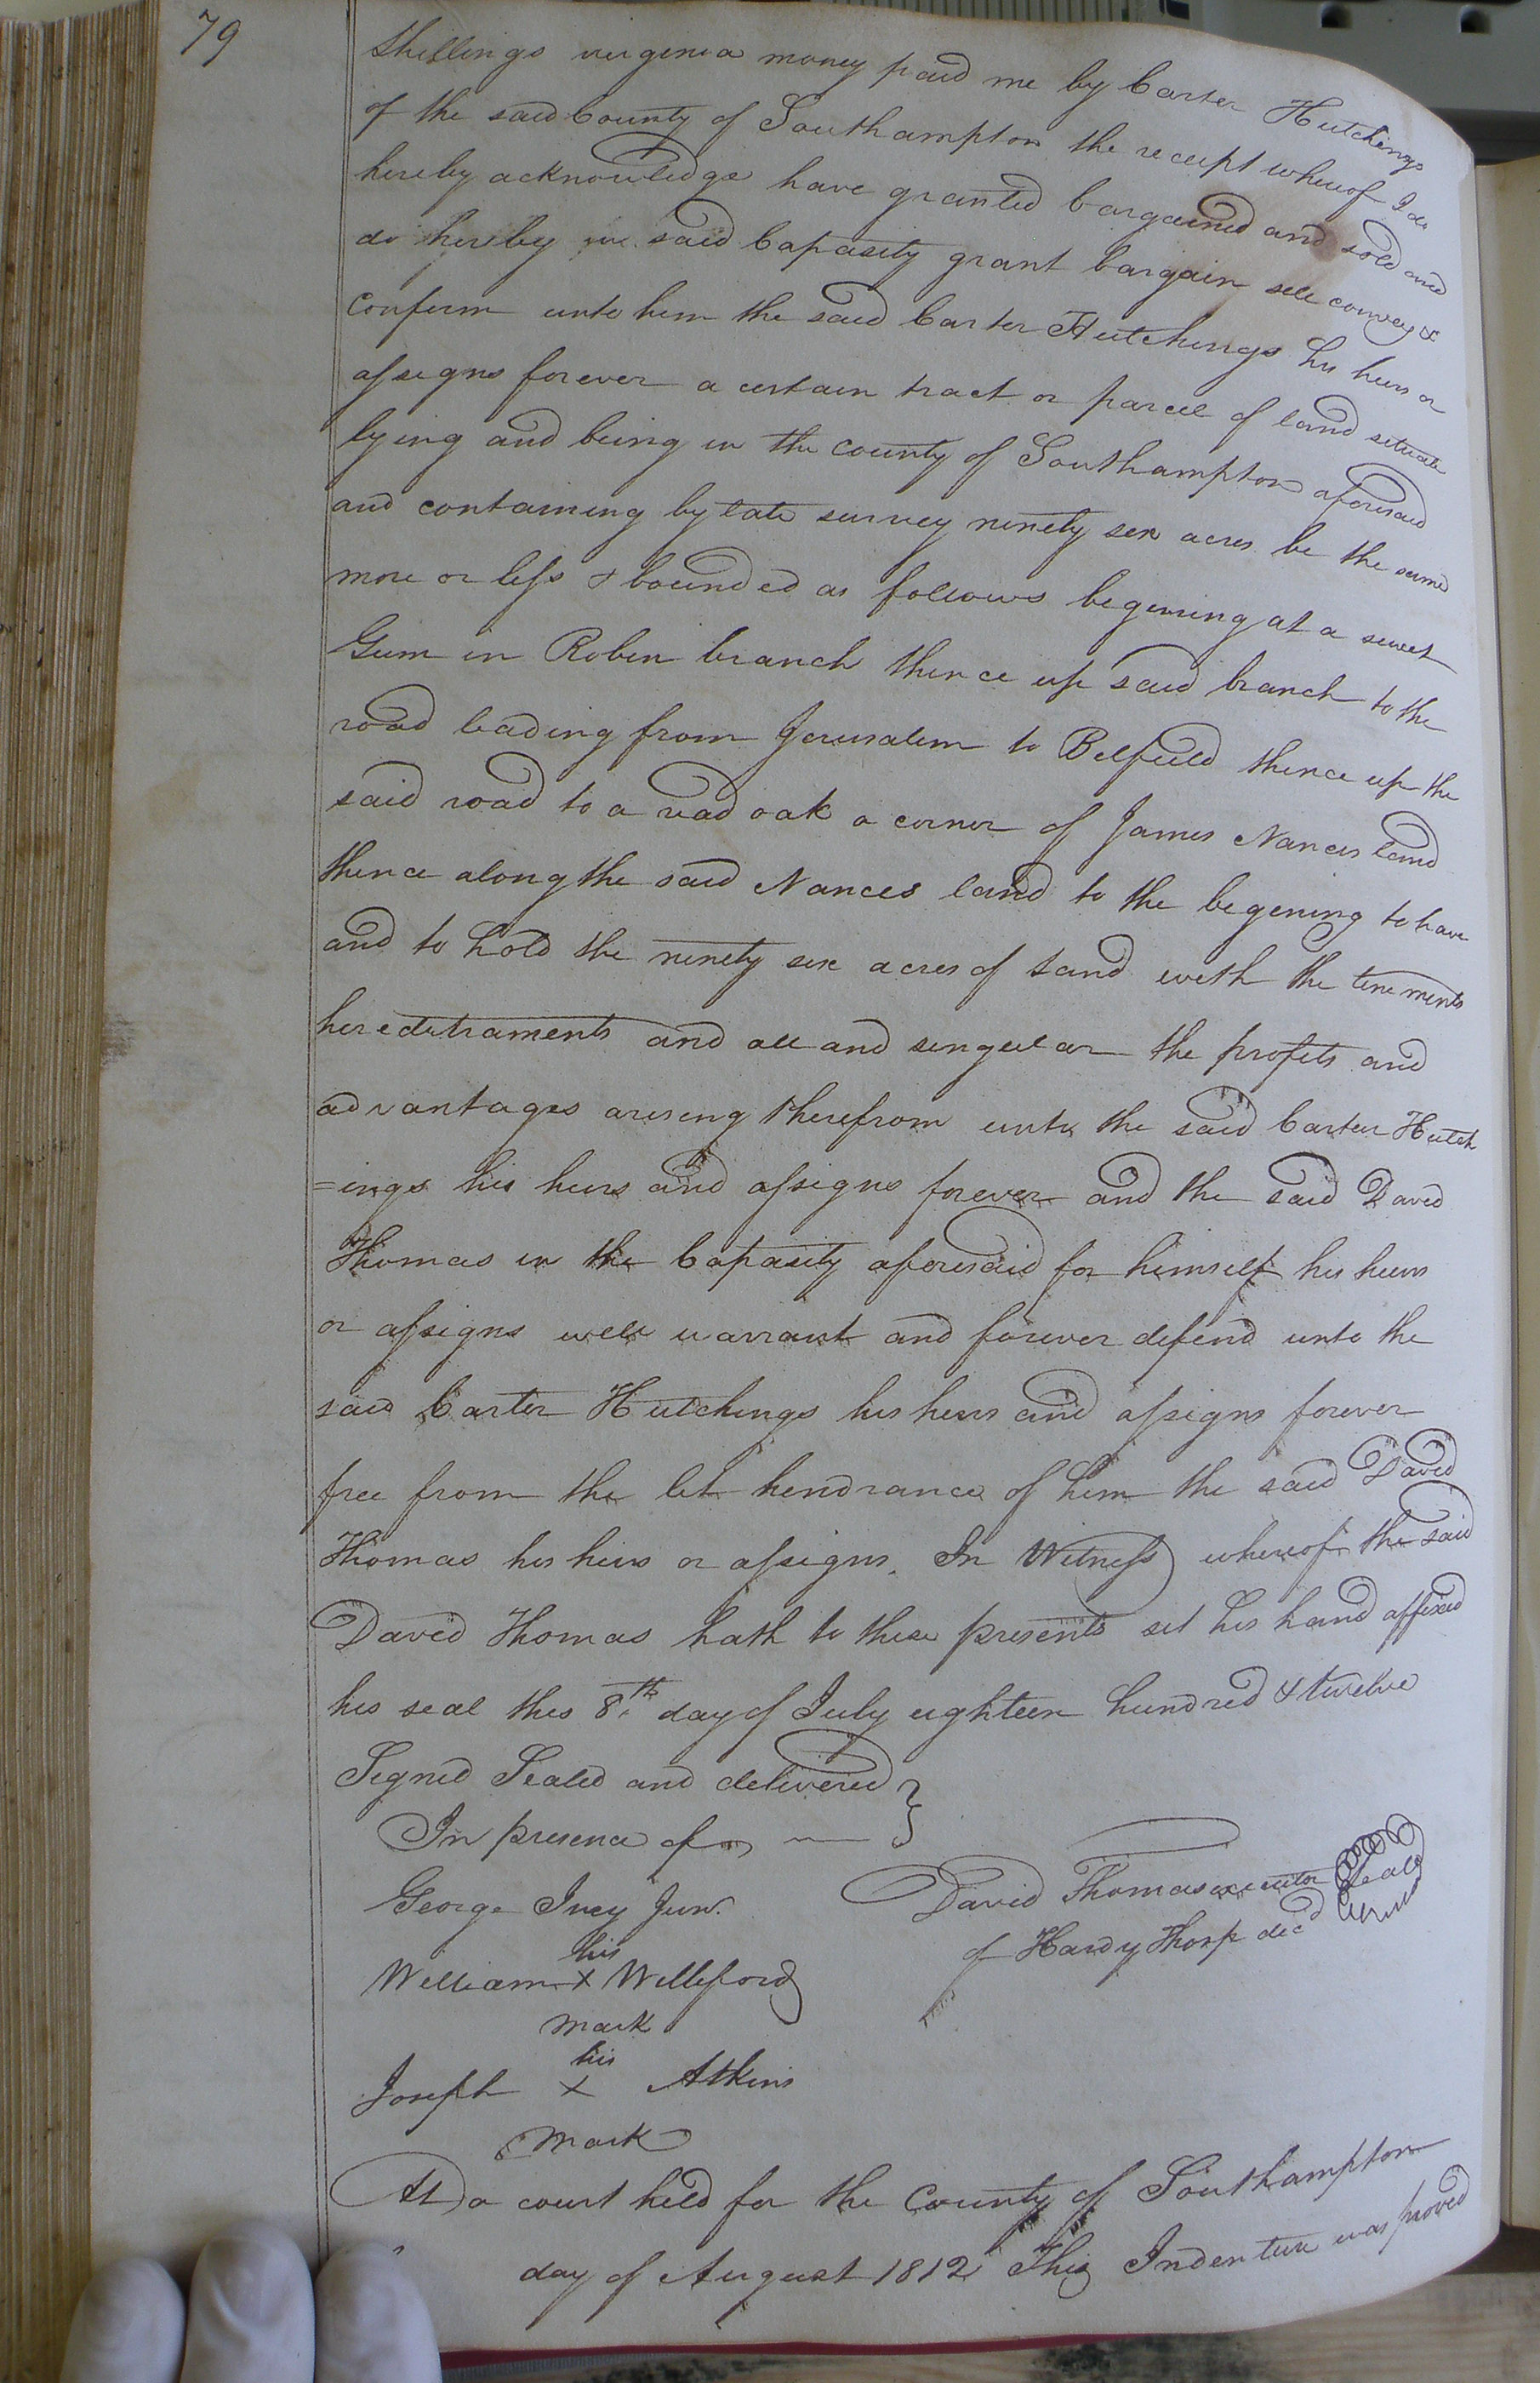 79
shillings virginia money paid me by Carter Hutchings
of the said County of Southampton the receipt whereof I do
hereby acknowledge have granted bargained and sold and
do hereby in said Capasity grant bargain sell convey &
confirm unto him the said Carter Hutchings his heirs or
assigns forever a certain tract or parcel of land situate
lying and being in the county of Southampton aforesaid
and containing by late survey ninety six acres be the same
more or less & bounded as follows begining at a sweet
Gum in Robin branch thence up said branch to the
road leading from Jerusalem to Belfield thence up the
said road to a read oak a corner of James Nances land
thence along the said Nances land to the begening to have
and to hold the ninety six acres of land with the tenements
hereditraments and all and singular the profits and
advantages ariseng therefrom unto the said Carter Hutch
=ings his heirs and assigns forever and the said David
Thomas in the Capasity aforesaid for himself his heirs
or assigns will warrant and forever defend unto the
said Carter Hutchings his heirs and assigns forever
free from the let hendrance of him the said David
Thomas his heirs or assigns. In Witness whereof the said
David Thomas hath to these presents set his hand affixed
his seal this 8th day of July eighteen hundred & twelve
Signed Sealed and delivered }
In presence of
David Thomas executor Seal
of Hardy Thorp decd
George Ivey Junr.
his
William X Williford
mark
his
Joseph X Atkins
mark
At a court held for the County of Southampton
day of August 1812 This Indenture was proved